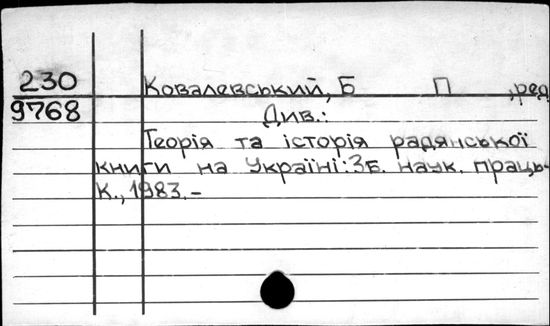 230 Ковалевський, Б П ,ред
9768 Див.:
Теорія та історія радянської
книги на Україні: Зб. наук. праць.-
К., 1983.-